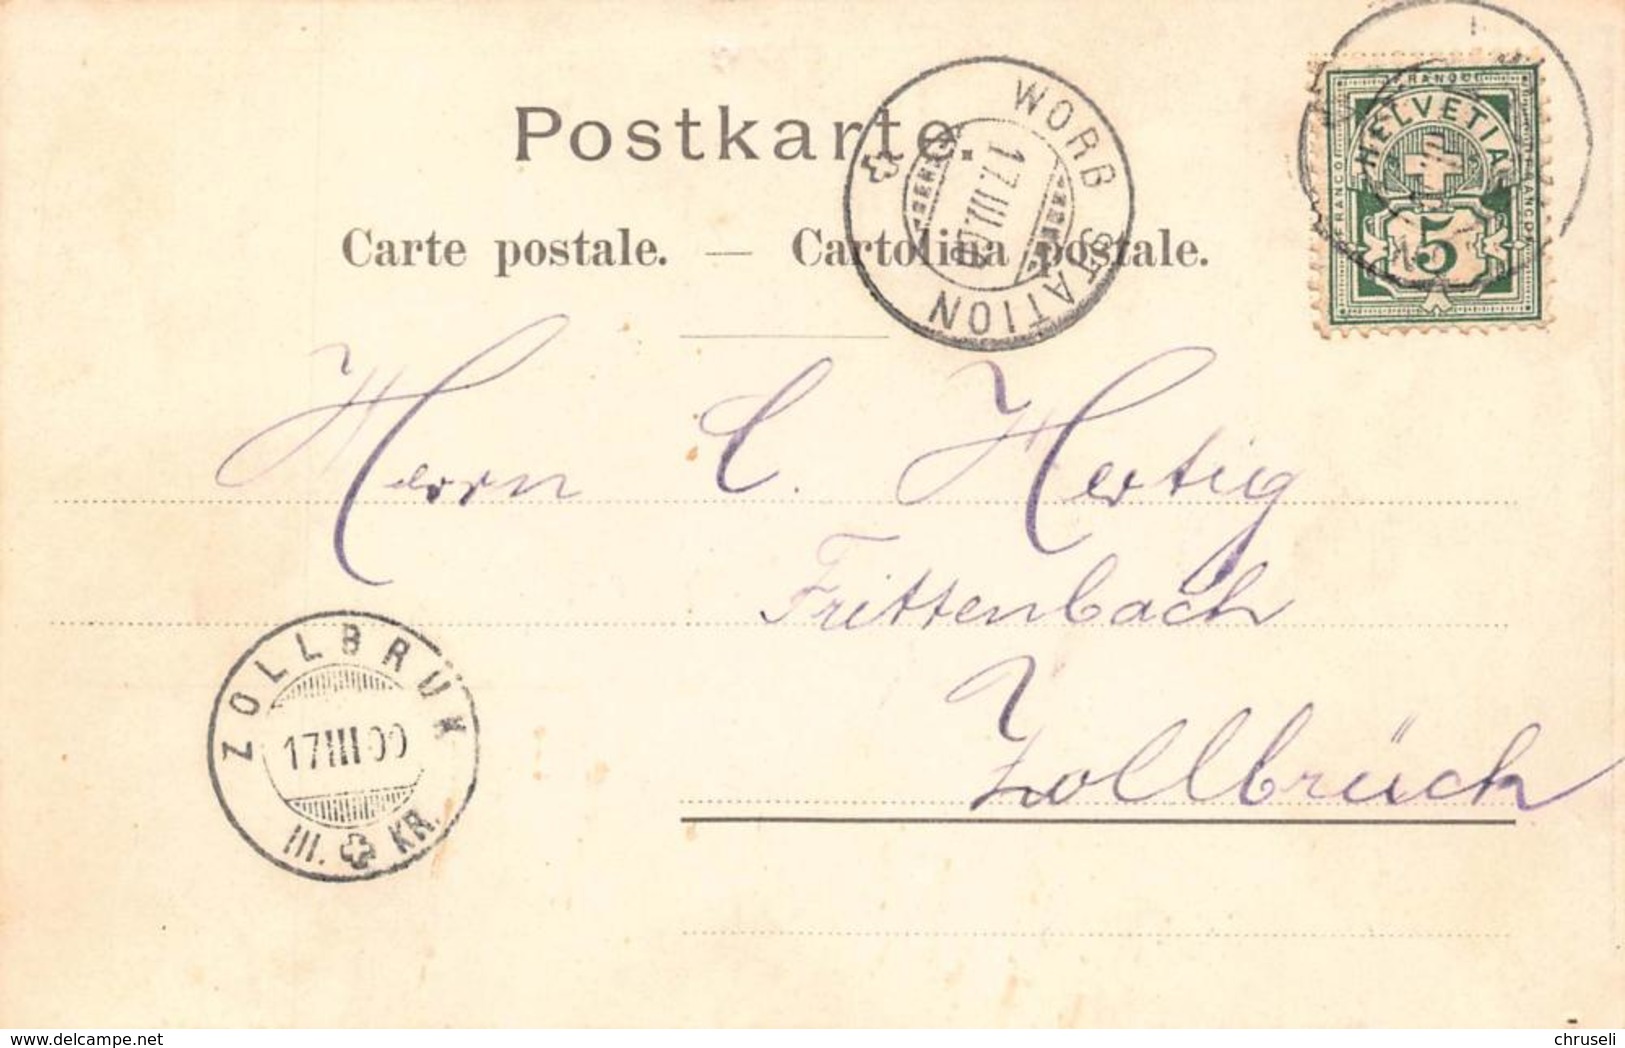 Postkarte.
Carte postale. — Cartolina postale.
WORB STATION
17.III.00
FRANCO
HELVETIA
5
Herrn C. Hertig
Frittenbach
Zollbrück
ZOLLBRÜK
17 III 00
III. KR.
www.delcampe.net
chruseli